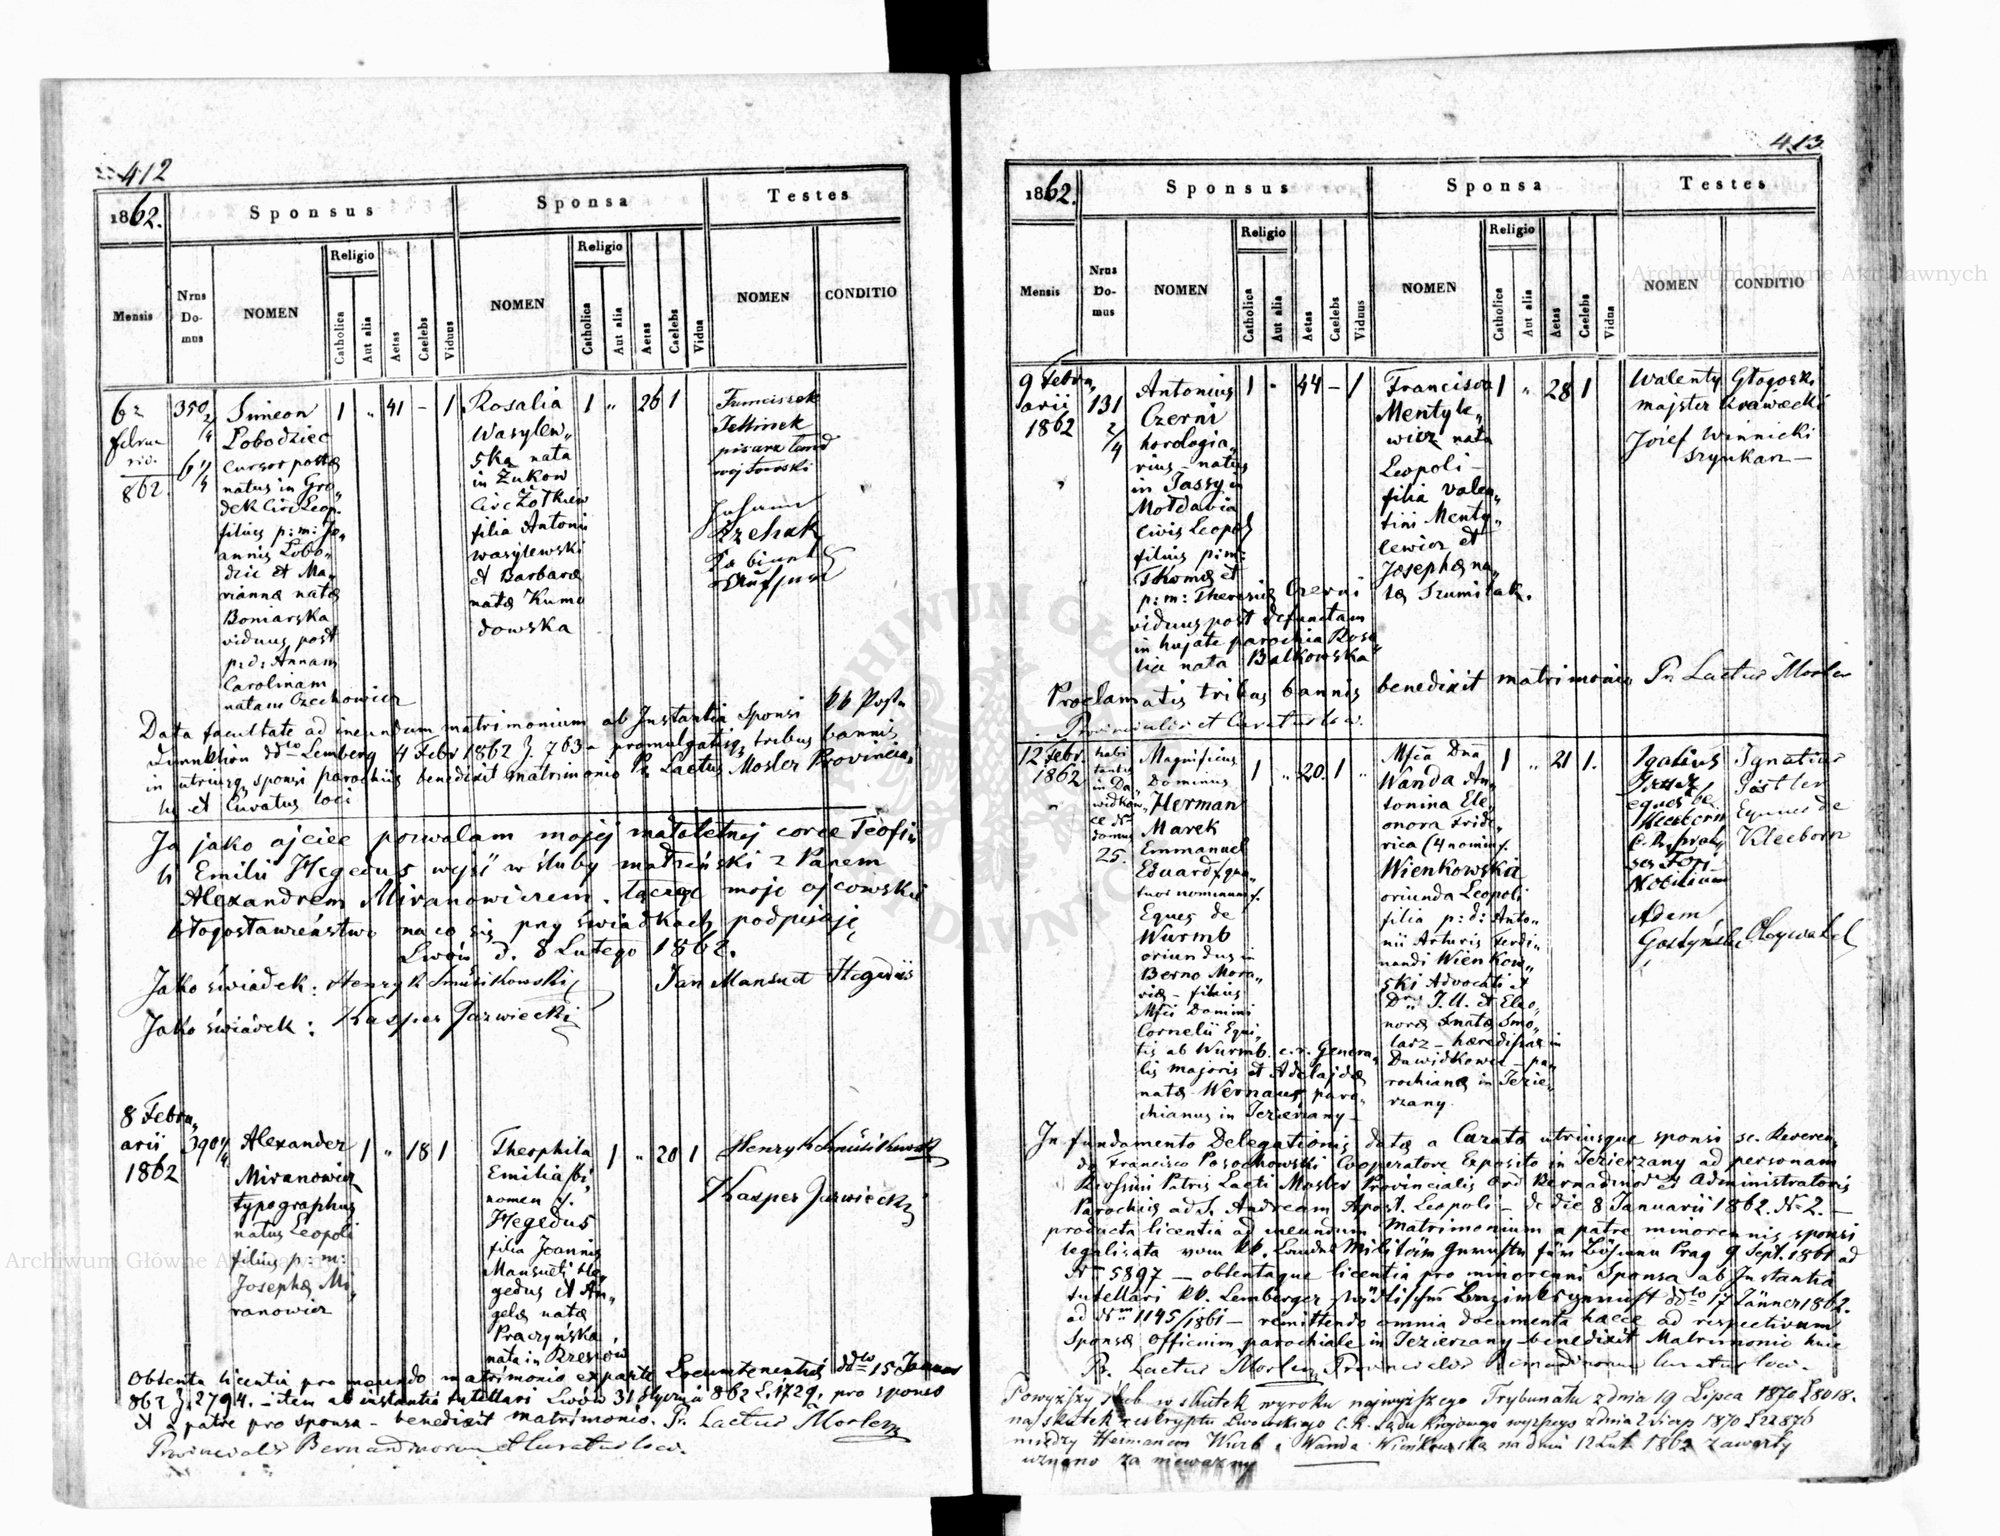 412
1862.
Sponsus
Sponsa
Testes
Mensis
Nrus Domus
NOMEN
Religio
Catholica
Aut alia
Aetas
Caelebs
Viduus
NOMEN
Religio
Catholica
Aut alia
Aetas
Caelebs
Vidua
NOMEN
CONDITIO
6
862.
350 2/4
6 4/4
Simeon
Łobodziec
cursor postæ
natus in Gro„
dek Circ Leop.
filius p: m: Jo„
annis Łobo„
dzic et Ma„
riannæ natæ
Boniarska
viduus post
p: d: Annam
Carolinam
natam Czechowicz
1 „ 41 – 1
Rosalia
Wasylew„
ska nata
in Żukow
Circ Żołkiew
filia Antonii
Wasylewski
et Barbaræ
natæ Kumo
dowska
1 „ 26 1
Franciszek
Johann
Rzehak
Data facultate ad ineundum matrimonium ab Instantia Sponsi kk Post„
Lemberg 4 Febr 1862 J. 763 – promulgatisq tribus bannis
in utriusq sponsi parochiis benedixit matrimonio Pr Laetus Mosler Provincia„
lis et Curatus loci
Ja jako ojciec pozwalam mojej małoletniej corce Teofi„
li Emilii Hegedus wejść w śluby małżeński z Panem
Alexandrem Miranowiczem. łącząc moje ojcowskie
błogosławieństwo na co się przy świadkach podpisuję
Lwów d. 8 Lutego 1862.
Jako świadek: Henryk
Jan Mansuet Hegedüs
Jako świadek: Kasper Jarwiecki
8 Febru„
arii
1862
390 4/4
Alexander
Miranowicz
typographus
natus Leopoli
filius p: m:
Josephæ Mi„
ranowicz
1 „ 18 1
Theophila
Emilia (bi„
nomen).
Hegedus
filia Joannis
Mansueti He„
gedus et An„
gelæ natæ
Praczyńska,
nata in Rzeszow
1 „ 20 1
Henryk
Kasper Jarwiecki
Obtenta licentia pro ineundo matrimonio ex parte Locumtenentiæ ddto 15 Januar
862 J. 2794. – item ab instantia tutellari Lwów 31 Stycznia 862 L. 1729, pro sponso
et a patre pro sponsa – benedixit matrimonio. Pr. Laetus Mosler
Provincialis Bernardinorum et Curatus loci.
413
1862.
Sponsus
Sponsa
Testes
Mensis
Nrus Domus
NOMEN
Religio
Catholica
Aut alia
Aetas
Caelebs
Viduus
NOMEN
Religio
Catholica
Aut alia
Aetas
Caelebs
Vidua
NOMEN
CONDITIO
9 Febru„
arii
1862
131
2/4
Antonius
Czerni
horologia„
rius – natus
in Jassy in
Mołdavia
Civis Leopol
filius p: m:
Thomæ et
p: m: Theresiæ Czerni
viduus post defunctam
in hujate parochia Rosa„
lia nata Balkowska
1 „ 44 – 1
Francisca
Mentyle„
wicz nata
Leopoli –
filia Valen„
tini Menty„
lewicz et
Josephæ na„
tæ Szumilak.
1 „ 28 1
Walenty Głogoski
majster krawecki
Józef Winnicki
szynkarz –
Proclamatis tribus bannis benedixit matrimonio Pr Laetus Mosler
Provincialis et Curatus loci.
12 Febr.
1862
habi
tantes
in Da„
widkow„
ce Nr
domus
25.
Magnificus
Dominus
Herman
Marek
Emmanuel
Eduard (qua„
tuor nominum).
Eques de
Wurmb
oriundus in
Berno Mora„
viæ – filius
Mfci Domini
Cornelii Equi„
tis ab Wurmb c. r. Genera„
lis majoris et Adelajdæ
natæ Wernauer paro„
chianus in Jezierzany –
1 „ 20. 1 „
Mfca Dna
Wanda An„
tonina Ele„
onora Fride„
rica (4 nomin).
Wienkowska
oriunda Leopoli
filia p: d: Anto„
nii Arturis Ferdi„
nandi Wienkow„
ski Advocati et
Dris J. U. et Eleo„
noræ natæ Smo„
larz – hæredissa in
Dawidkowce – pa„
rochiana in Jezie„
rzany.
1 „ 21 1.
Ignatius
eques de
Kleeborn
Fori
Nobilium
Adam
Gostyński Obywatel
Ignatius
Eques de
Kleeborn
In fundamento Delegationis datæ a Curato utriusque sponsi sc. Reveren„
do Francisco Posochowski Cooperatore Exposito in Jezierzany ad personam
Rmssimi Patris Laeti Mosler Provincialis Ord Bernadinor et Administratoris
Parochiæ ad S. Andream Apost. Leopoli – de die 8 Januarii 1862. No 2. –
producta licentia ad ineundum Matrimonium a patre minorennis sponsi
legalisata vom kk. Landes Militär Gerichte für Böhmen Prag 9 Sept. 1861 ad
Nrm 5897 – obtentaque licentia pro minorenni Sponsa ab Instantia
tutellari kk. Lemberger städtisches Bezirksgericht ddto 17 Jänner 1862.
ad Nrm 1145/1861 – remittendo omnia documenta hæcce ad respectivum
Sponsæ Officium parochiale in Jezierzany – benedixit Matrimonio huic
Pr. Laetus Mosler Provincialis Bernardinorum Curatus loci.
Powyższy ślub w skutek wyroku najwyższego Trybunału z dnia 19 Lipca 1870 L 8018.
na skutek reskryptu Lwowskiego C. K. Sądu krajowego wyższego z dnia 2 sierp 1870 L 22876
między Hermanem Wurb i Wanda Wieńkowską na dniu 12 Lut. 1862 zawarty
uznano za nieważny
Archiwum Główne Akt Dawnych
Archiwum Główne Akt Dawnych
ARCHIWUM GŁÓWNE AKT DAWNYCH